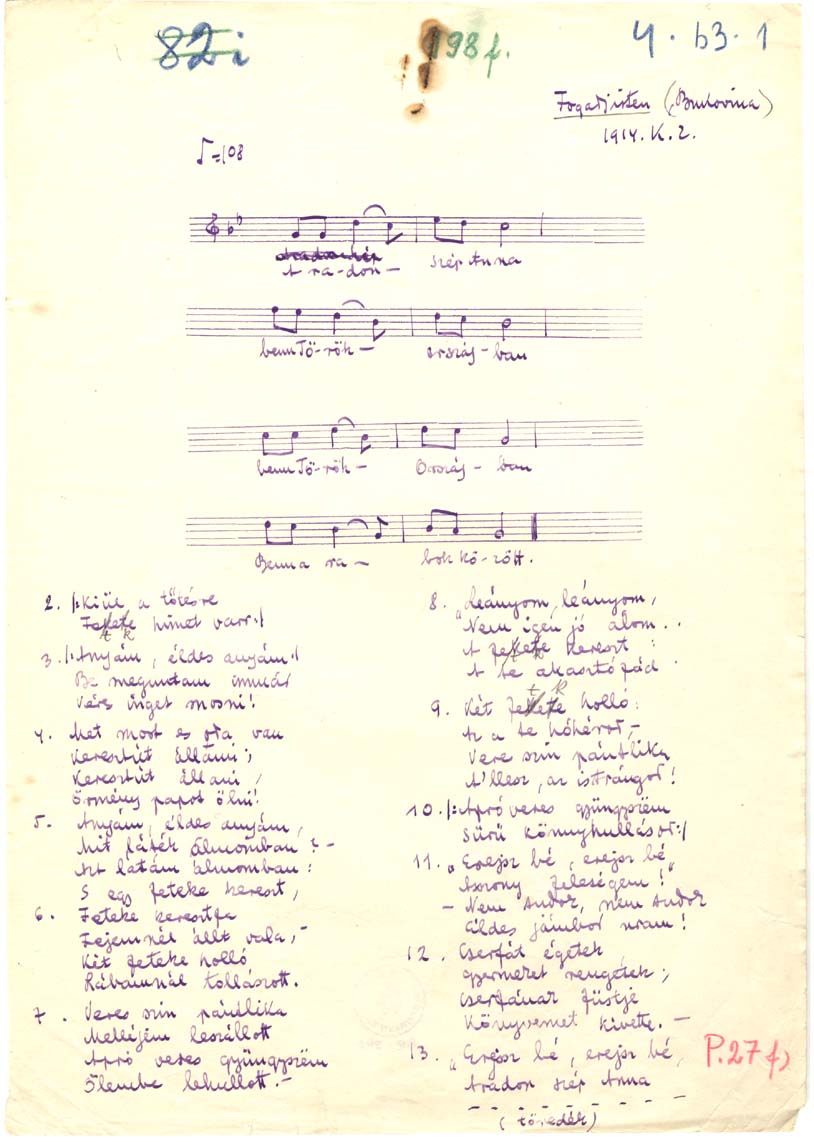 82i
198f.
4.b3.1
Fogadjisten (Bukovina)
1914. K. 2.
♪=108
A ra-don- szép Anna
benn Tö-rök- ország-ban
benn Tö-rök- Ország-ban
Benn a ra- bok kö-zött.
2. |:Kiül a törésre
Fekete hímet varr:|
t k
3. |:Anyám, éldes anyám:|
Be meguntam immár
Véres inget mosni!
4. Met most es oda van
Keresztút állani;
Keresztút állani,
Örmény papot ölni!
5. Anyám, éldes anyám,
Mit láték álmomban? -
Azt látám álmomban:
S egy feteke kereszt,
6. Feteke keresztfa
Fejemnél állt vala,-
Két feteke holló
Lábaimnál tollászott.
7. Veres szín pántlika
Mellégém leszállott
Apró veres gyüngyszëm
Ölembe lehullott.-
8. „Leányom, leányom,
Nem igën jó álom..
A fekete kereszt:
t k
A te akasztófád.
t k
9. Két fekete holló:
Az a te hóhérod,-
Veres szín pántlika
A'llesz, az istrángod!
10. |:Apró veres gyüngyszëm
Sürü könnyhullásod:|
11. „Erejsz bé, erejsz bé,
Asszony feleségem!"
- Nem Audor, nem Audor
Éldes jámbor uram!
12. Cserfát égetek,
gyermeket rengetek;
Cserfának füstje
Könyvemet kivette. -
13. „Erejsz bé, erejsz bé,
Aradon szép Anna
- - - - - - - - - -
(töredék)
P.27f)